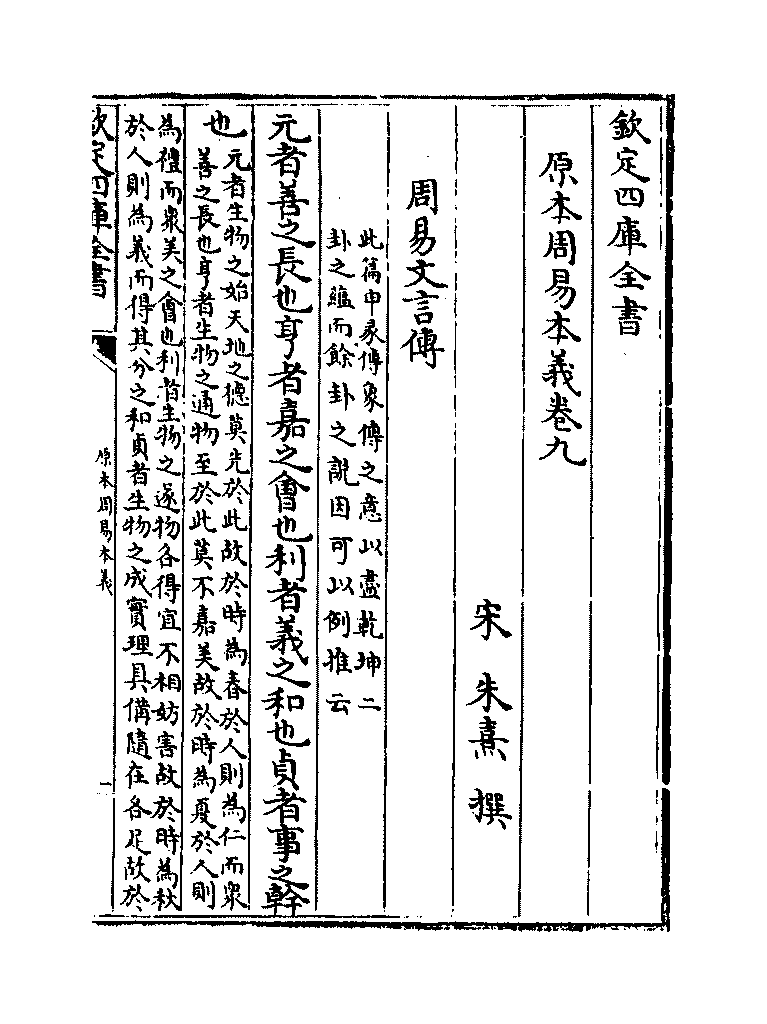 欽定四庫全書
原本周易本義卷九
宋 朱熹 撰
周易文言傳
此篇申彖傳象傳之意以盡乾坤二
卦之蘊而餘卦之說因可以例推云
元者善之長也亨者嘉之會也利者義之和也貞者事之幹
也
元者生物之始天地之德莫先於此故於時為春於人則為仁而衆
善之長也亨者生物之通物至於此莫不嘉美故於時為夏於人則
為禮而衆美之會也利者生物之遂物各得宜不相妨害故於時為秋
於人則為義而得其分之和貞者生物之成實理具備隨在各足故於
欽定四庫全書
原本周易本義
一